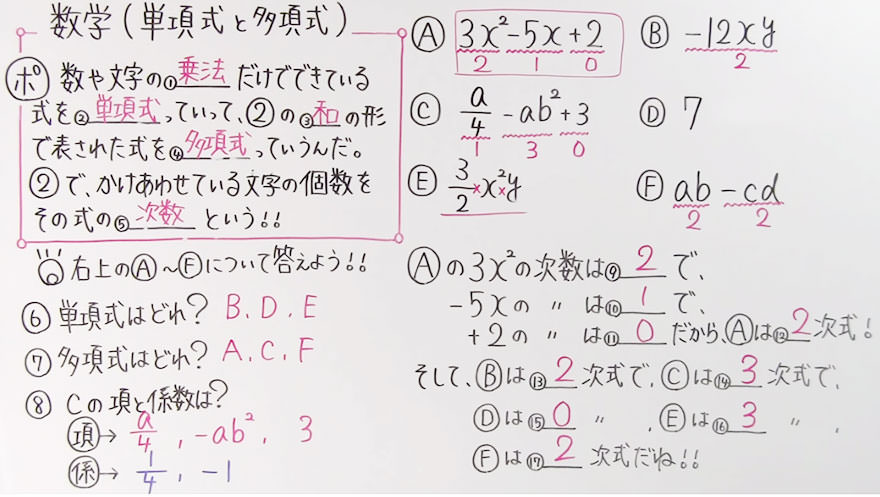 数学(単項式と多項式)
ポ 数や文字の①乗法だけでできている
式を②単項式っていって、②の③和の形
で表された式を④多項式っていうんだ。
②で、かけあわせている文字の個数を
その式の⑤次数という!!
右上のⒶ～Ⓕについて答えよう!!
⑥単項式はどれ? B, D, E
⑦多項式はどれ? A, C, F
⑧Cの項と係数は?
項→ a/4, -ab², 3
係→ 1/4, -1
Ⓐ 3x²-5x+2
2 1 0
Ⓑ -12xy
2
Ⓒ a/4 -ab²+3
1 3 0
Ⓓ 7
Ⓔ 3/2 × x² × y
Ⓕ ab-cd
2 2
Ⓐの3x²の次数は⑨2で、
-5xの 〃 は⑩1で、
+2の 〃 は⑪0だから、Ⓐは⑫2次式!
そして、Ⓑは⑬2次式で、Ⓒは⑭3次式で、
Ⓓは⑮0 〃 、Ⓔは⑯3 〃 、
Ⓕは⑰2次式だね!!